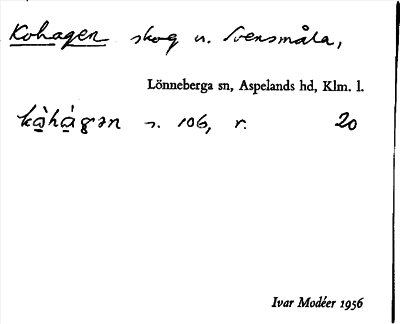 Kohagen skog u. Svensmåla,
Lönneberga sn, Aspelands hd, Klm. l.
kò̠hà̠gən s. 106, r. 20
Ivar Modéer 1956